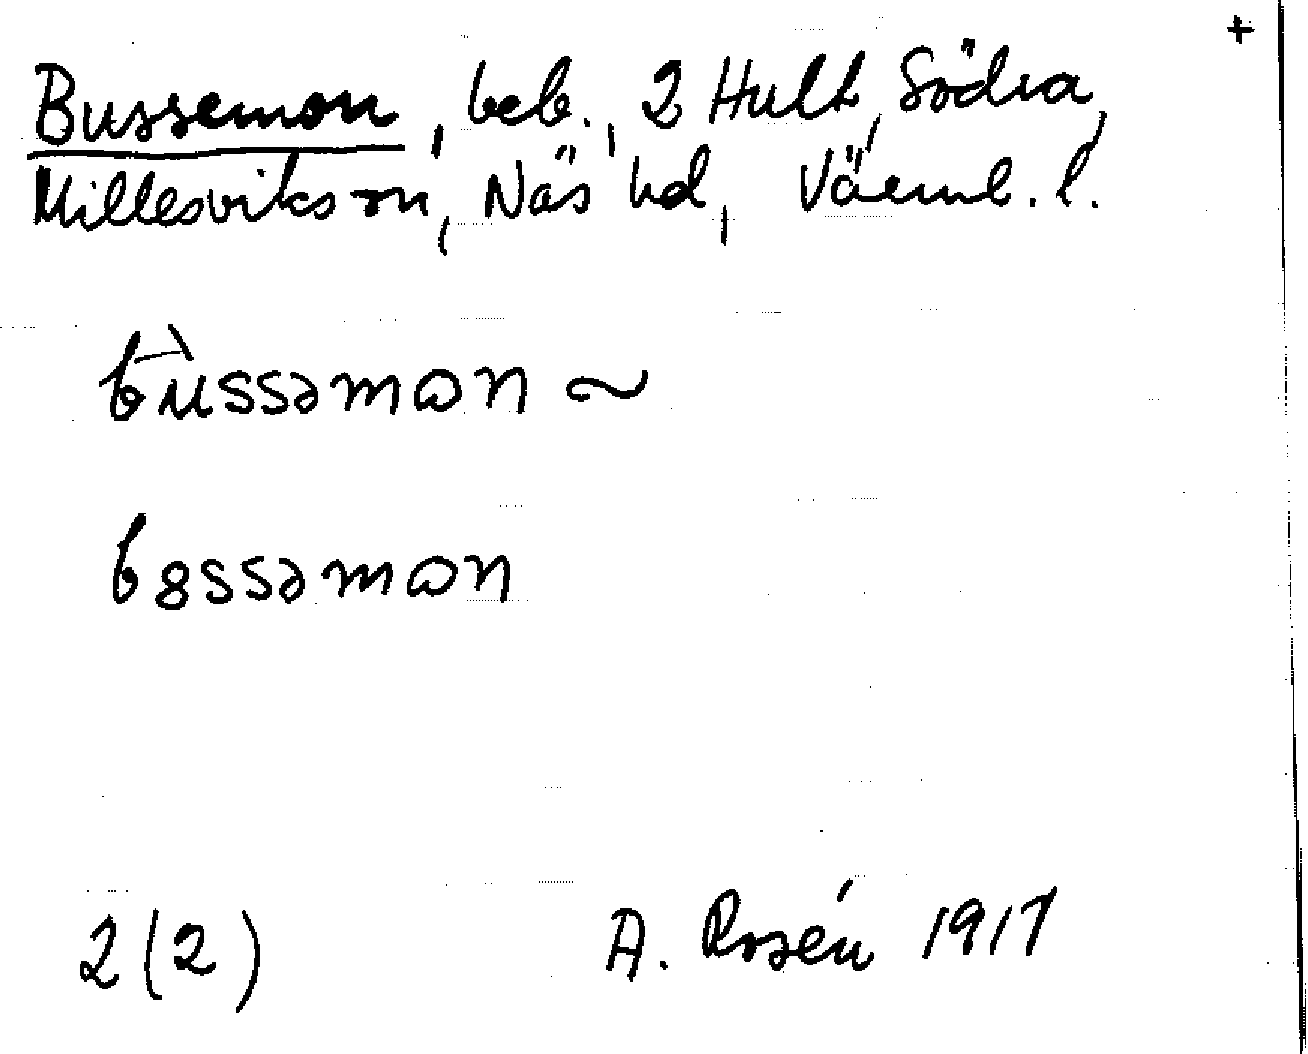 +
Bussemon, beb., 2 Hult, Södra,
Millesviks sn, Näs hd, Värml. l.
bùssəmɷn ~
b8ssəmɷn
2(2) A. Rosén 1917